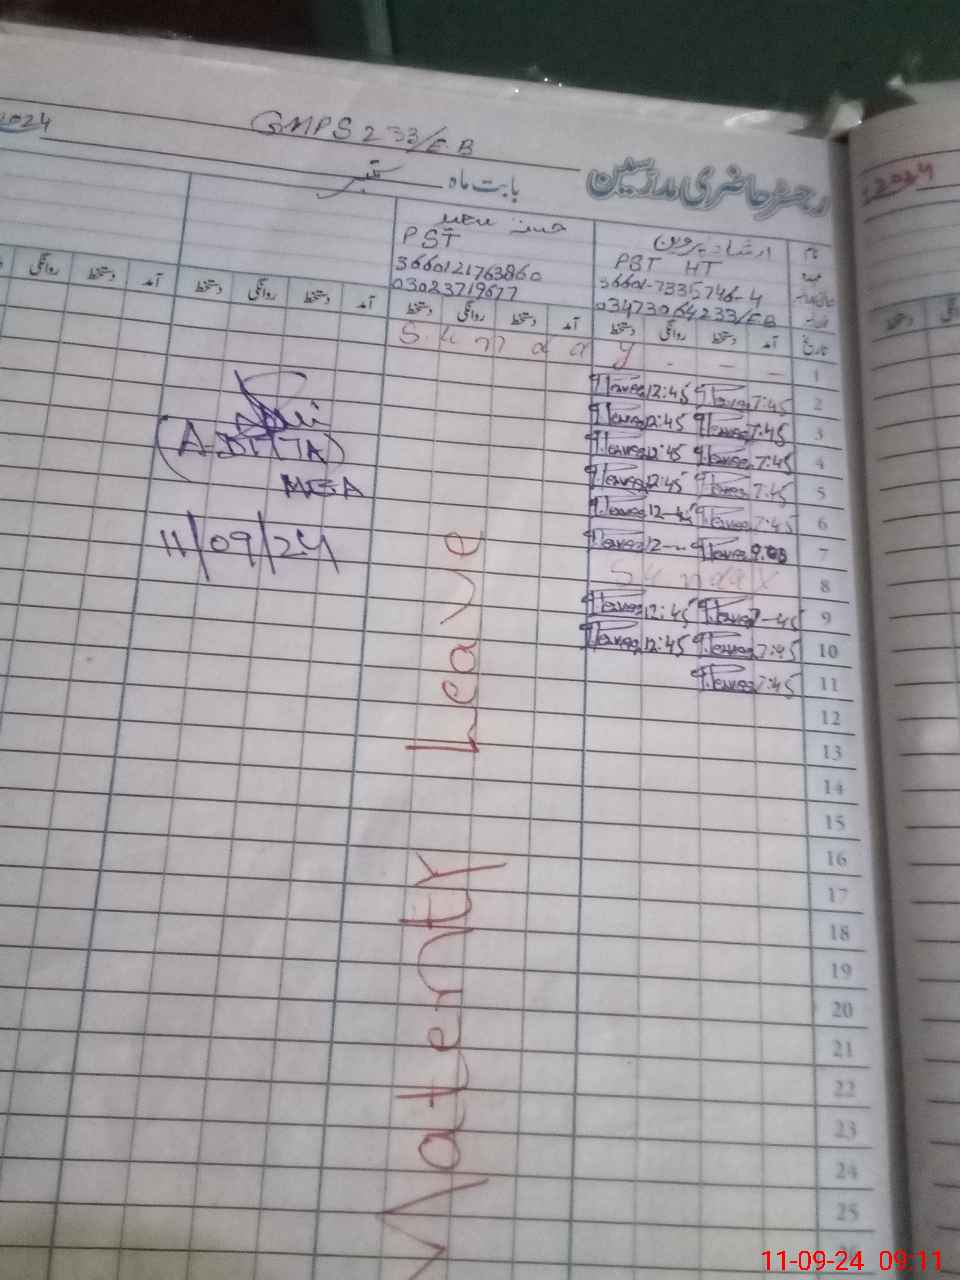 2024
GMPS 233/E.B
رجسٹر حاضری مدرسین
بابت ماہ ستمبر
2024
نام
ارشاد پروین
PST HT
36601-7335746-4
03473064233/EB
PST
3660121763860
03023719677
تاریخ
آمد دستخط روانگی دستخط
آمد دستخط روانگی دستخط
آمد دستخط روانگی دستخط
روانگی دستخط
1
Sunday
2 7:45 12:45
3 7:45 12:45
4 7:45 12:45
5 7:45 12:45
6 7:45 12-45
7 9:00 12--
8 Sunday
9 7-45 12:45
10 7:45 12:45
11 7:45
12
13
14
15
16
17
18
19
20
21
22
23
24
25
Maternty Leave
MEA
11/09/24
11-09-24 09:11